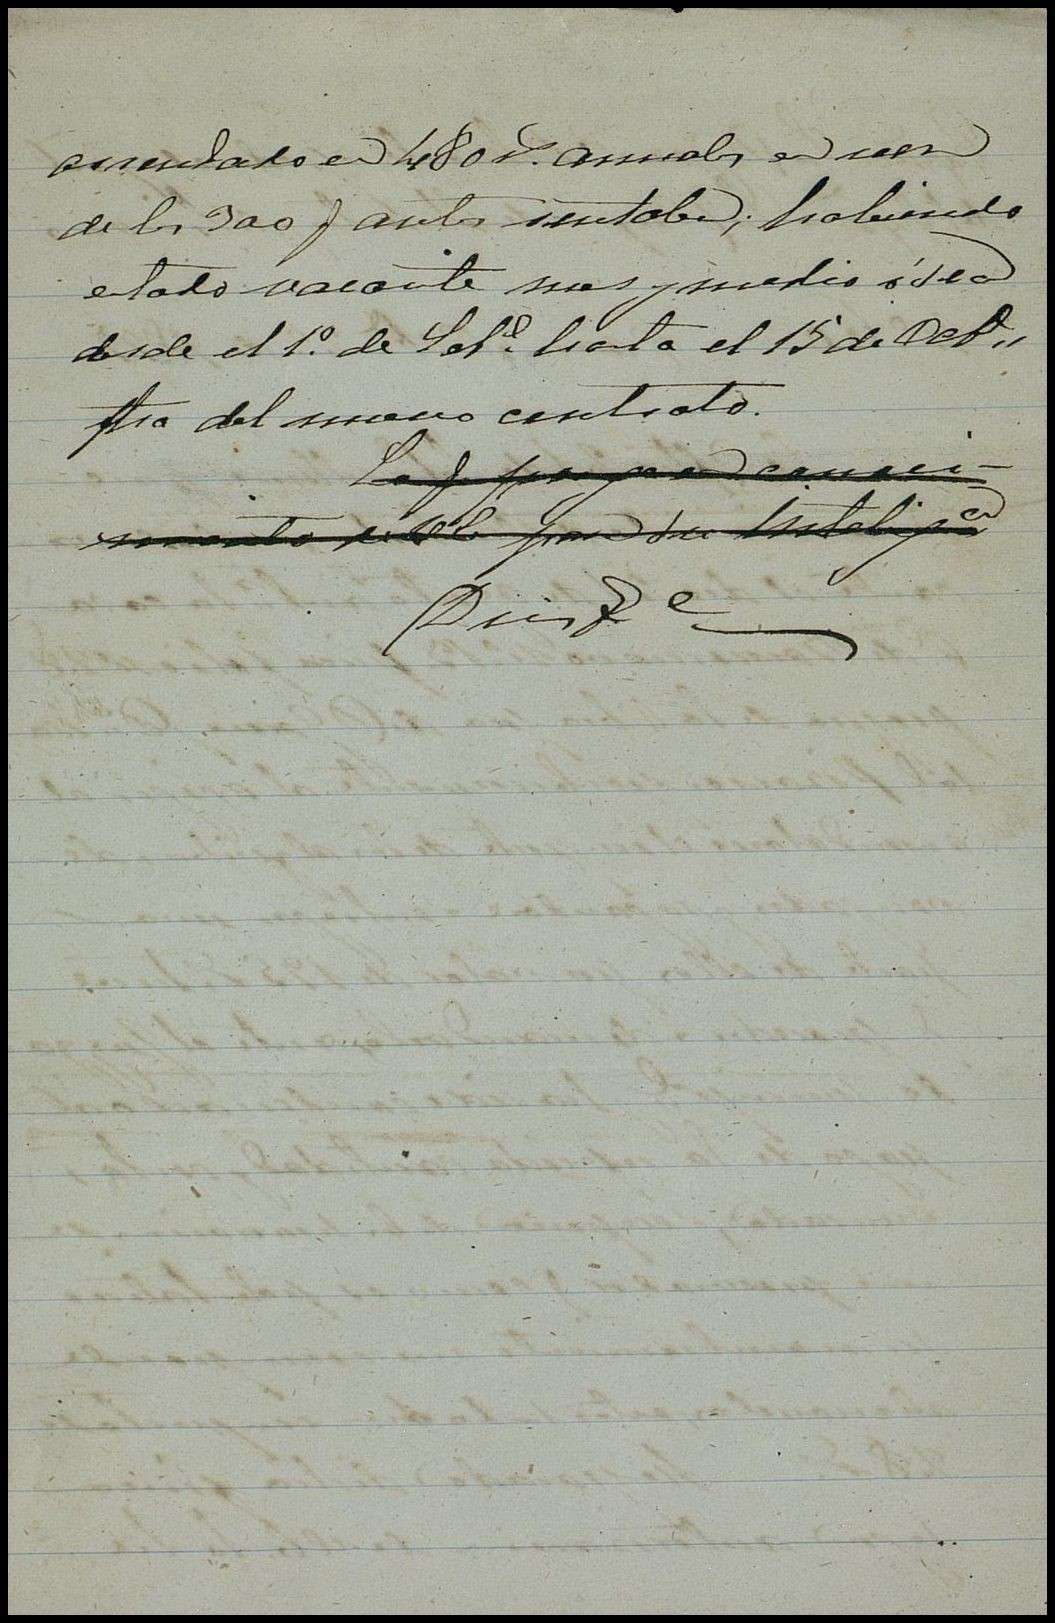 arrendado en 480 r. anuales en vez
de los 320 q antes rentaba; habiendo
estado vacante mes y medio ó sea
desde el 1º. de Sebe. hasta el 15 de Octe.
fha del nuevo contrato.
Lo q. pongo en conoci-
miento de VE para su inteliga
Dios &e